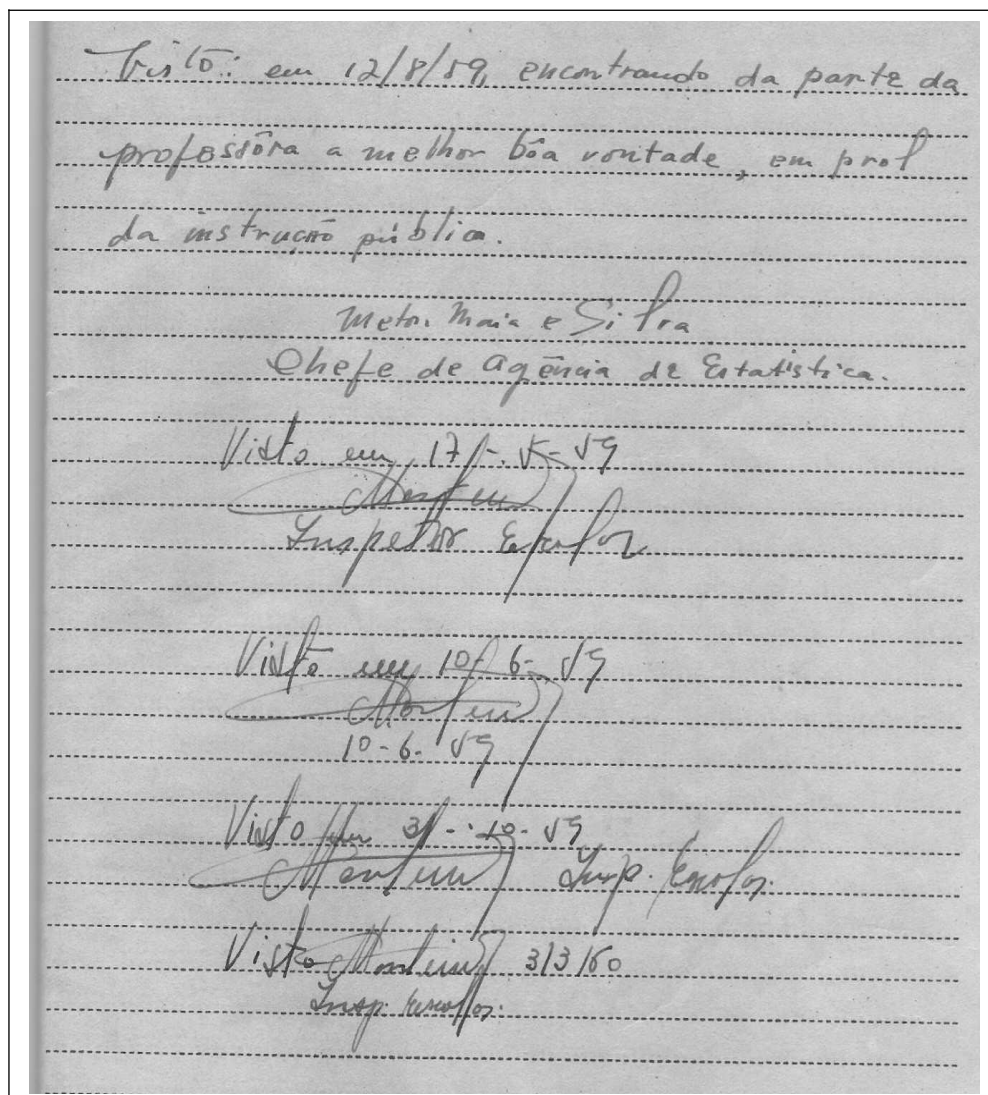 Visto: em 12/8/59, encontrando da parte da
professôra a melhor bôa vontade, em prol
da instrução pública.
Meton Maia e Silva
Chefe de Agência de Estatistica.
Visto em 17-5-59
Inspetor Escolar
Visto em 10-6-59
10-6-59
Visto em 31-10-59
Insp. Escolar.
Visto 3/3/60
Insp. Escolar.